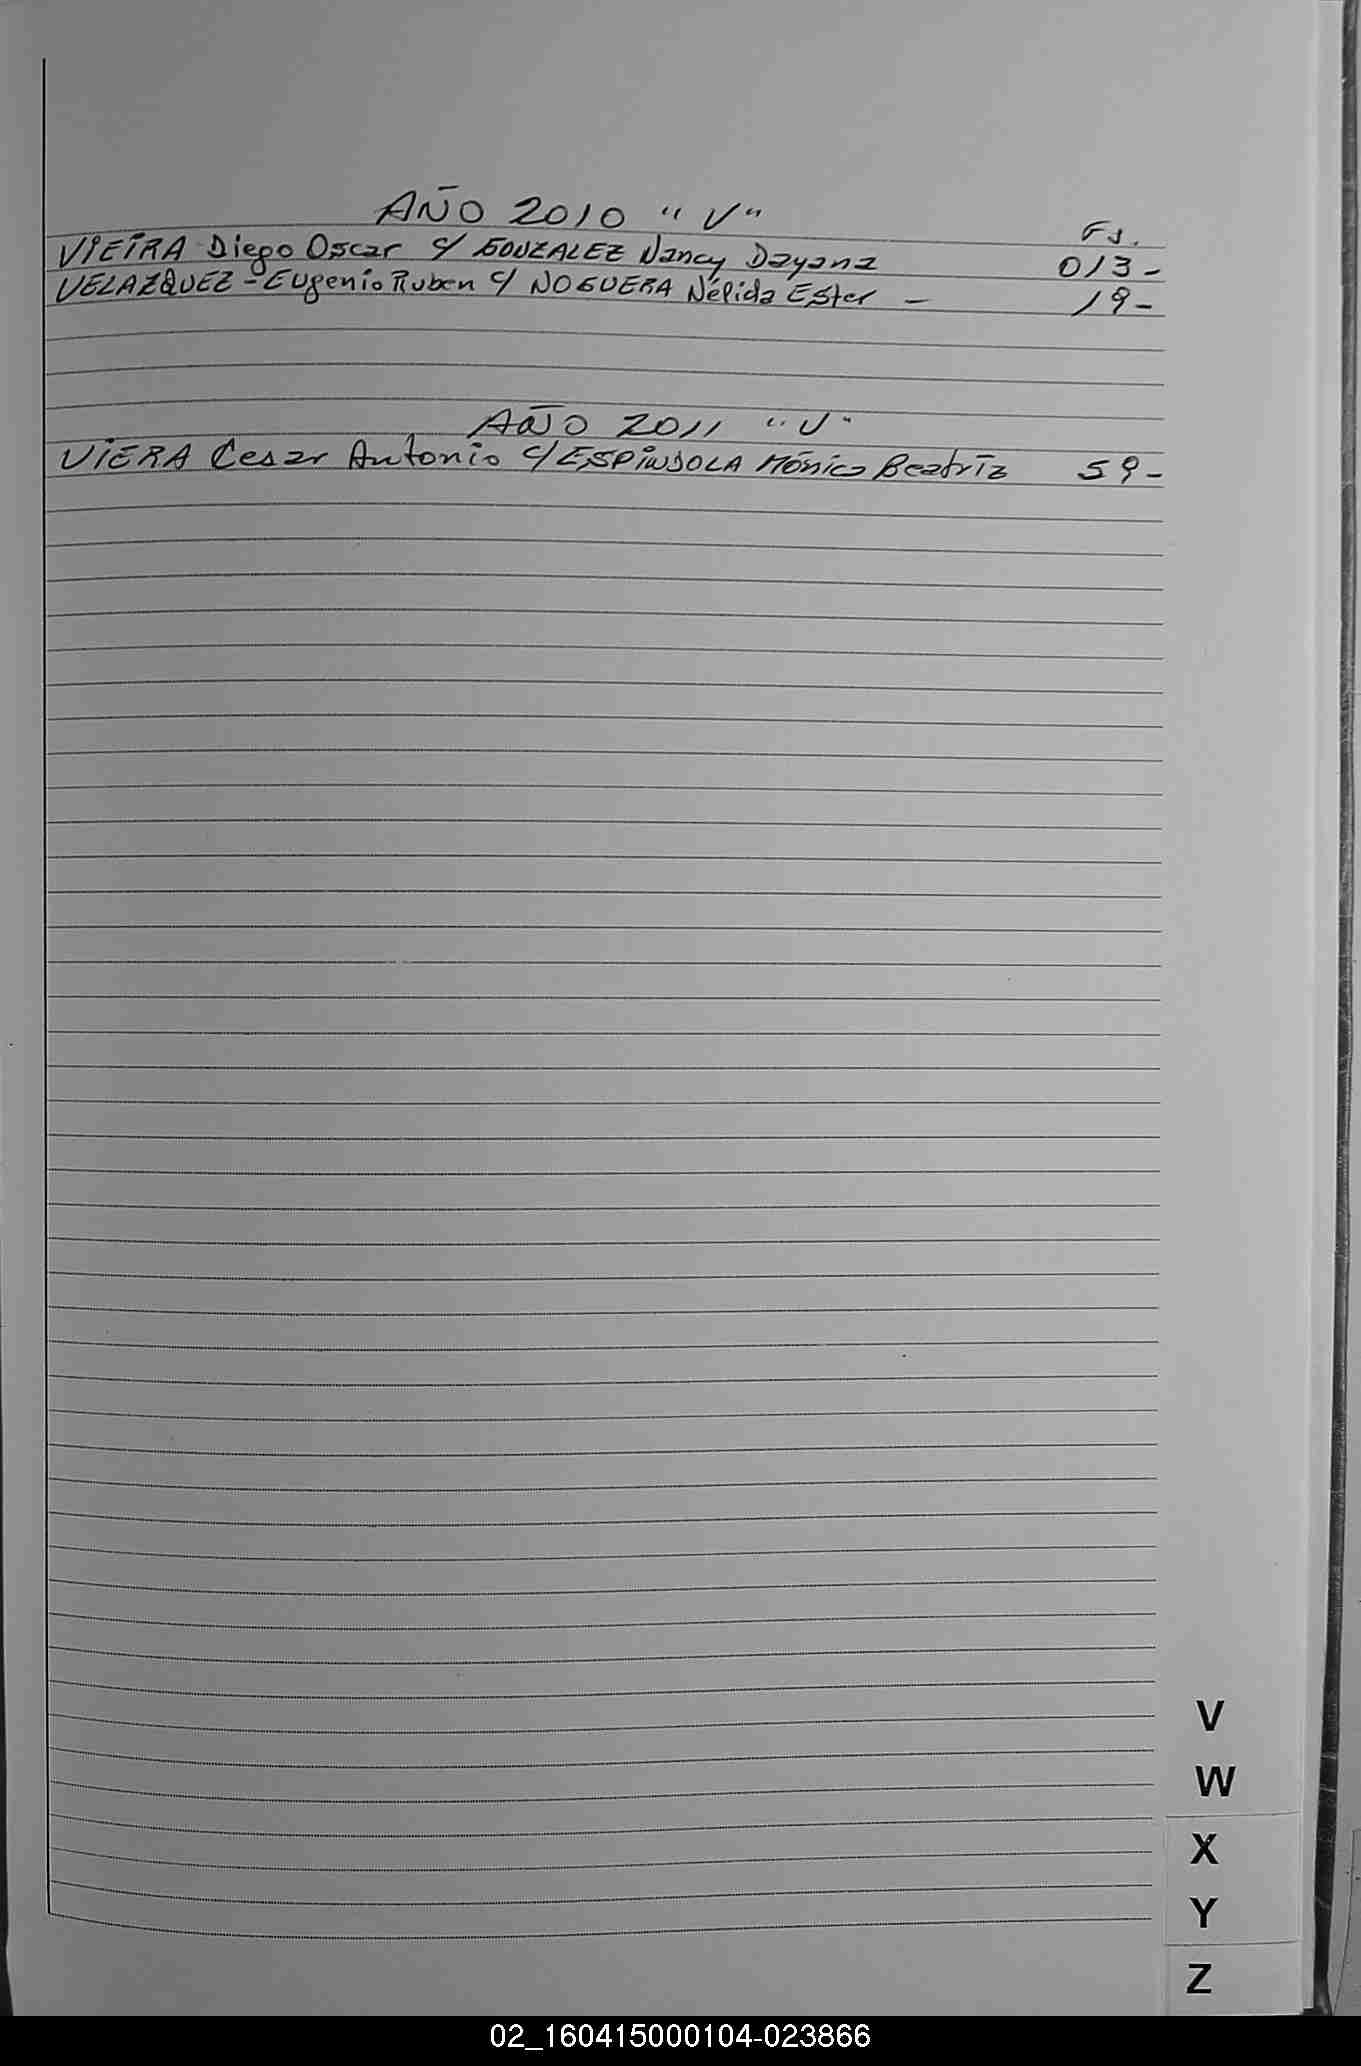 AÑO 2010 "V"
Fs.
VIEIRA Diego Oscar c/ GONZALEZ Nancy Dayana 013-
VELAZQUEZ - Eugenio Ruben c/ NOGUERA Nélida Ester - 19-
AÑO 2011 "V"
VIERA Cesar Antonio c/ ESPINDOLA Mónica Beatriz 59-
V
W
X
Y
Z
02_160415000104-023866